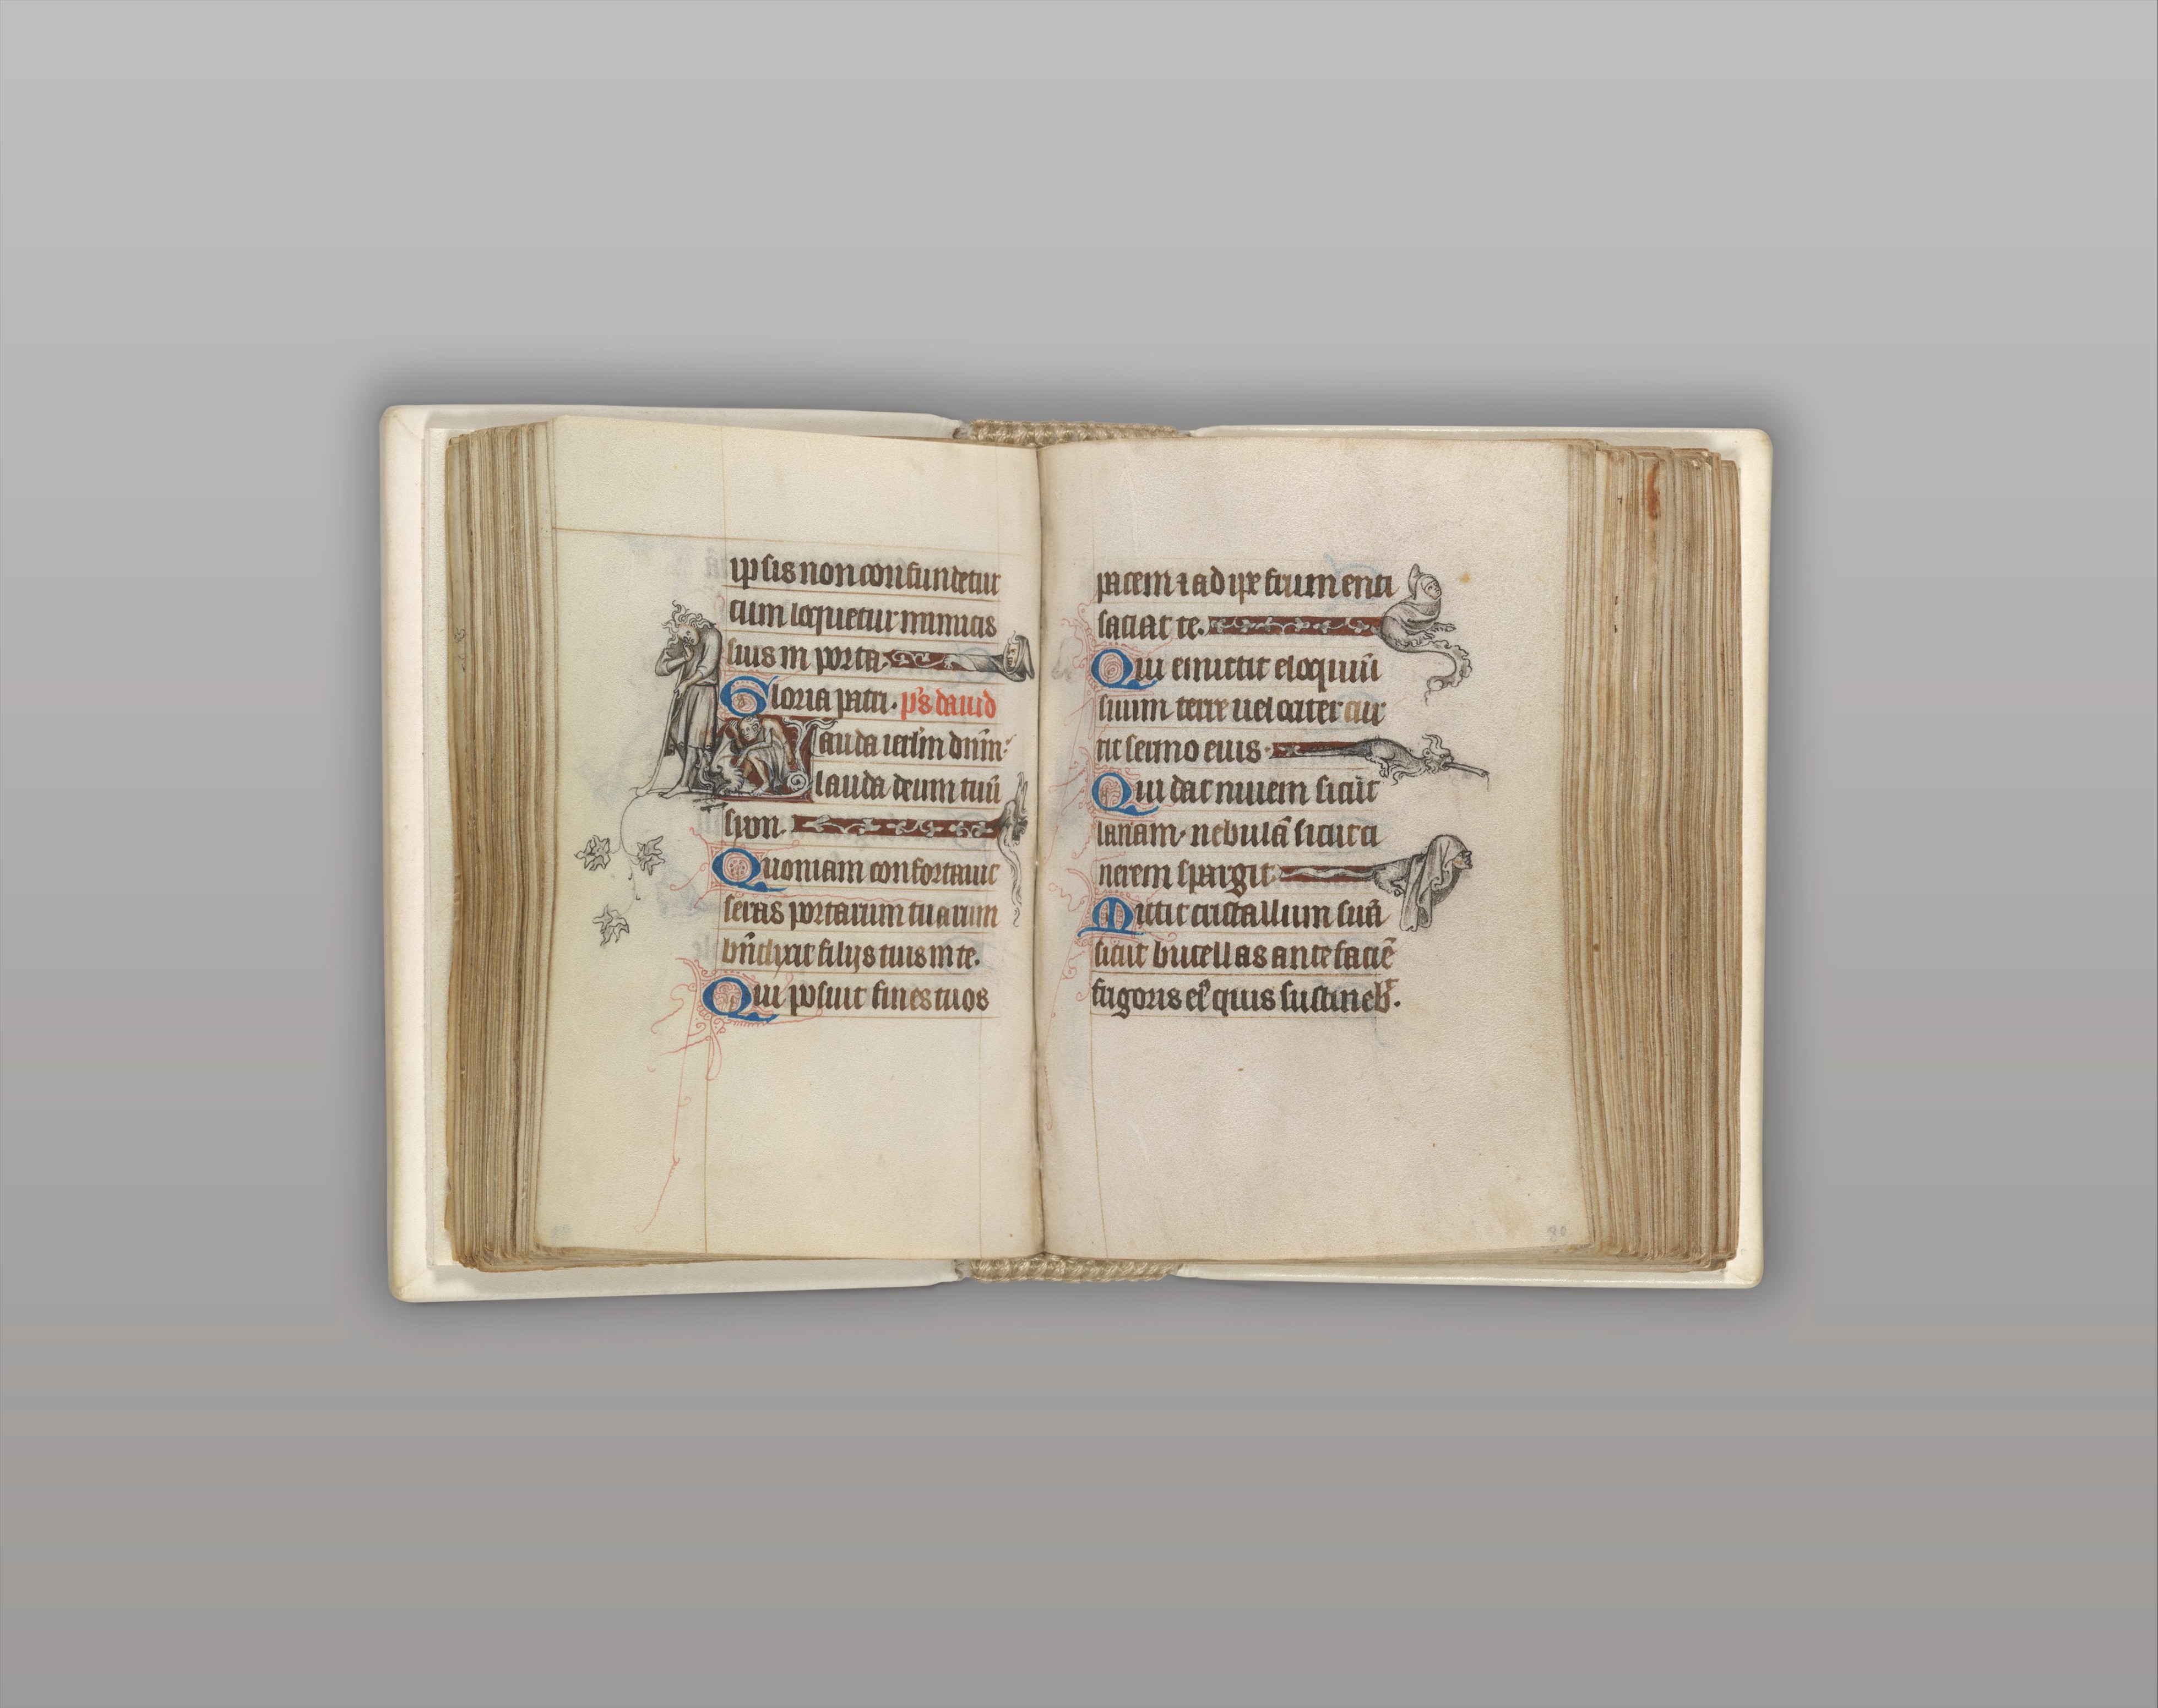 ipsis non confundetur
cum loquetur inimicis
suis in porta.
Gloria patri. ps̄ dauid
Lauda ierl̄m dn̄m:
lauda deum tuū
syon.
Quoniam confortauit
seras portarum tuarum
bn̄dixit filijs tuis in te.
Qui posuit fines tuos
pacem ⁊ adipe frumenti
saciat te.
Qui emittit eloquiū
suum terre uelociter cur
rit sermo eius.
Qui dat niuem sicut
lanam. nebulā sicut ci
nerem spargit.
Mittit cristallum suū
sicut bucellas ante faciē
frigoris eiꝰ quis sustineb̄.
80